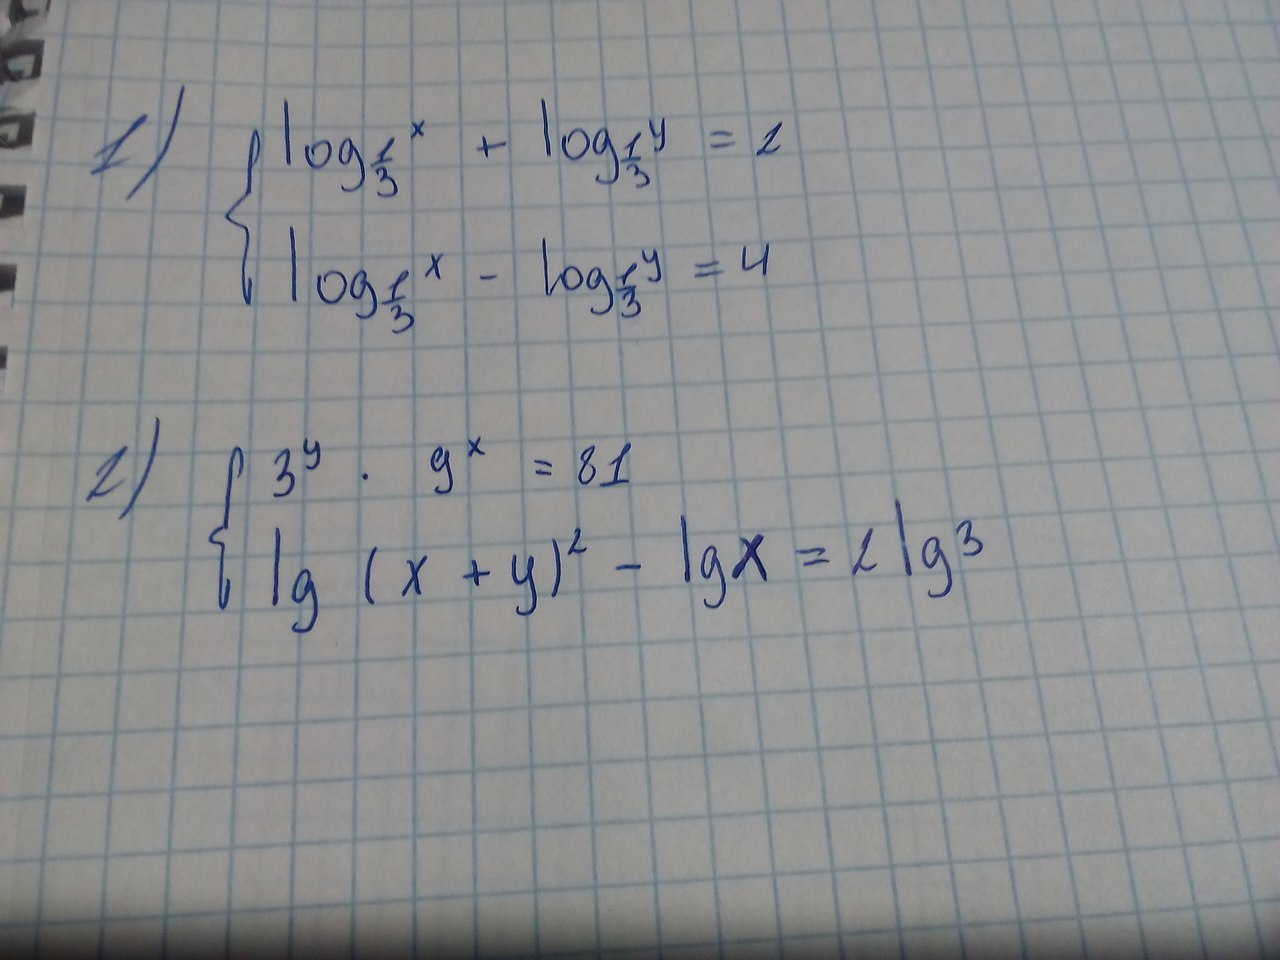 1) { log_{1/3} x + log_{1/3} y = 2
log_{1/3} x - log_{1/3} y = 4
2) { 3^y · 9^x = 81
lg (x + y)^2 - lg x = 2 lg 3